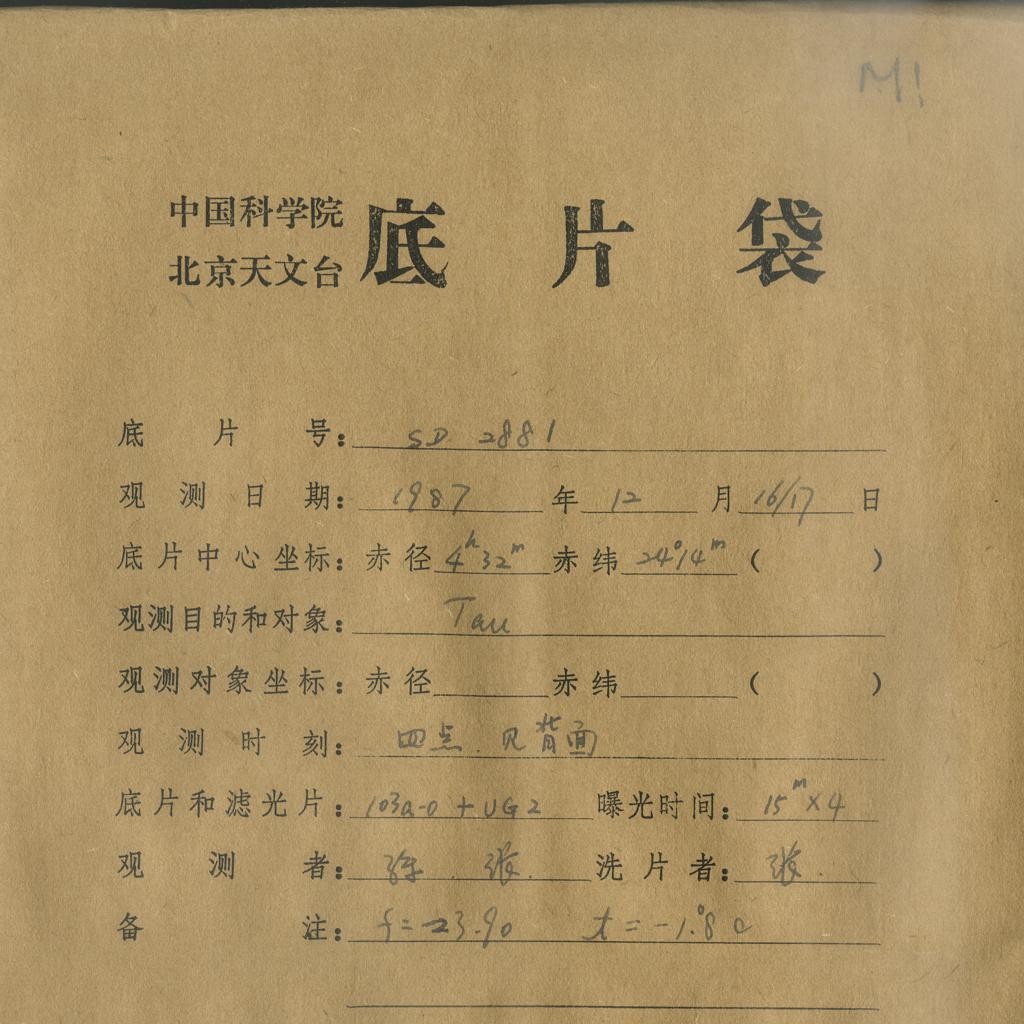 M!
中国科学院
北京天文台
底片袋
底片号: SD 2881
观测日期: 1987年12月16/17日
底片中心坐标: 赤径 4h32m 赤纬 24°14m ( )
观测目的和对象: Tau
观测对象坐标: 赤径 赤纬 ( )
观测时刻: 四点.见背面
底片和滤光片: 103a-0+UG2 曝光时间: 15m×4
观测者: 张. 洗片者: 张.
备注: f=23.90 t=-1.°8 c